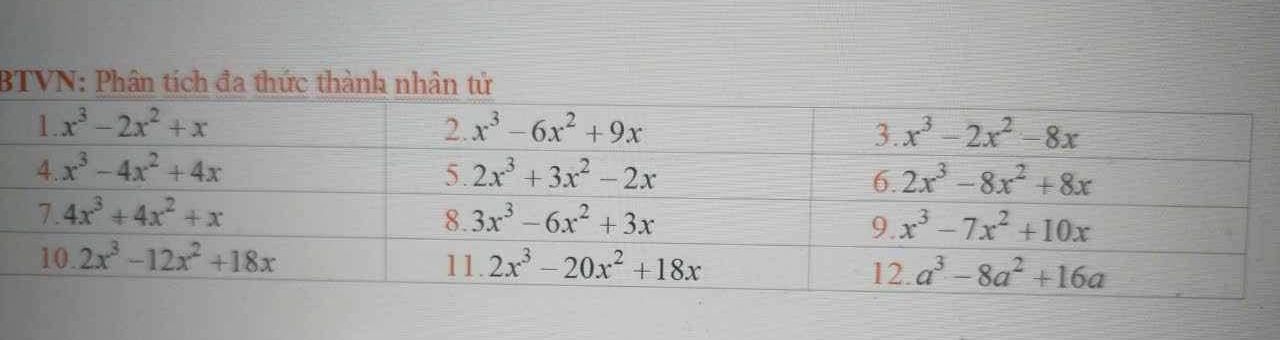 BTVN: Phân tích đa thức thành nhân tử
1. x³ – 2x² + x 2. x³ – 6x² + 9x 3. x³ – 2x² – 8x
4. x³ – 4x² + 4x 5. 2x³ + 3x² – 2x 6. 2x³ – 8x² + 8x
7. 4x³ + 4x² + x 8. 3x³ – 6x² + 3x 9. x³ – 7x² + 10x
10. 2x³ – 12x² + 18x 11. 2x³ – 20x² + 18x 12. a³ – 8a² + 16a